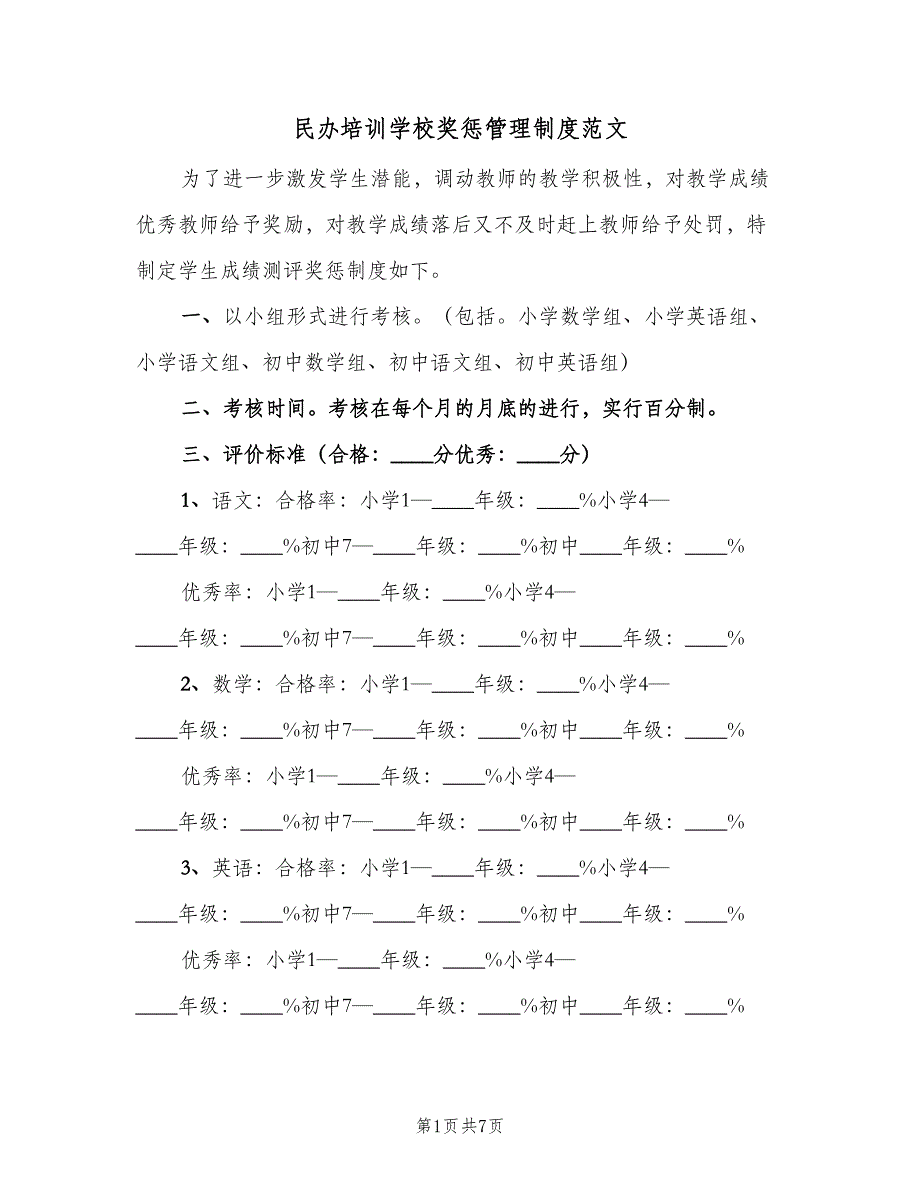 民办培训学校奖惩管理制度范文
为了进一步激发学生潜能，调动教师的教学积极性，对教学成绩
优秀教师给予奖励，对教学成绩落后又不及时赶上教师给予处罚，特
制定学生成绩测评奖惩制度如下。
一、以小组形式进行考核。（包括。小学数学组、小学英语组、
小学语文组、初中数学组、初中语文组、初中英语组）
二、考核时间。考核在每个月的月底的进行，实行百分制。
三、评价标准（合格：____分优秀：____分）
1、语文：合格率：小学1—____年级：____%小学4—
____年级：____%初中7—____年级：____%初中____年级：____%
优秀率：小学1—____年级：____%小学4—
____年级：____%初中7—____年级：____%初中____年级：____%
2、数学：合格率：小学1—____年级：____%小学4—
____年级：____%初中7—____年级：____%初中____年级：____%
优秀率：小学1—____年级：____%小学4—
____年级：____%初中7—____年级：____%初中____年级：____%
3、英语：合格率：小学1—____年级：____%小学4—
____年级：____%初中7—____年级：____%初中____年级：____%
优秀率：小学1—____年级：____%小学4—
____年级：____%初中7—____年级：____%初中____年级：____%
第1页共7页